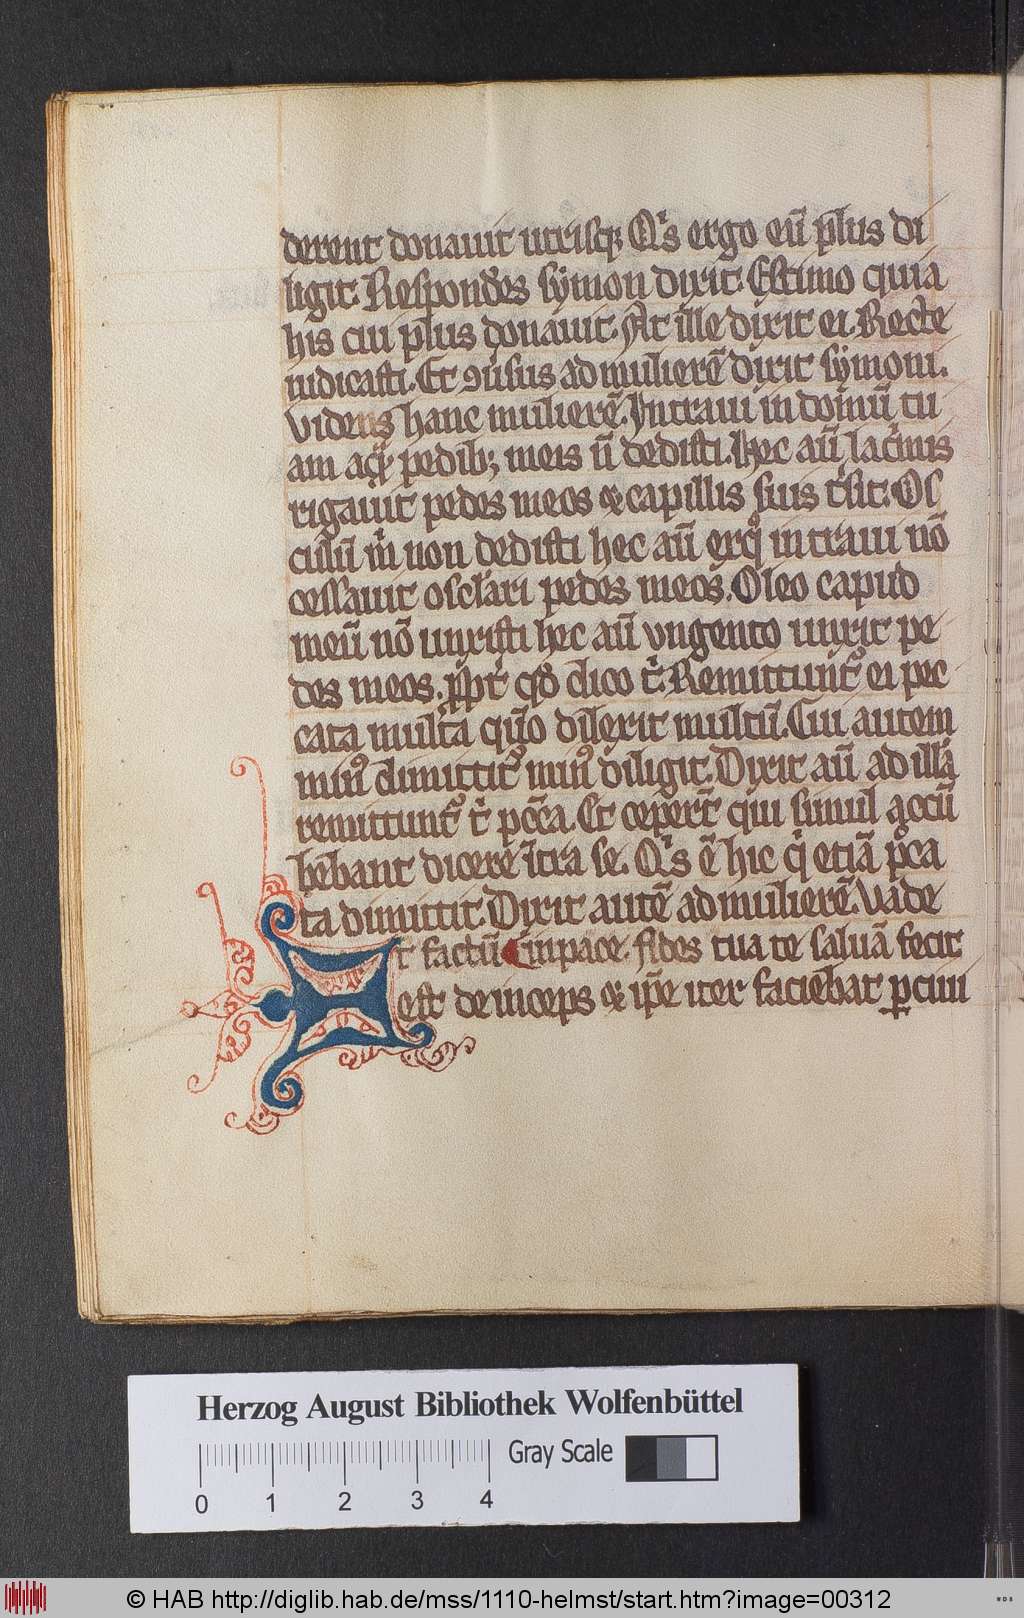 derent donauit utrisq; Qͥs ergo eū plus di
ligit. Respondēs symon dixit. Estimo quia
his cui plus donauit. At ille dixit ei. Recte
iudicasti. Et ꝯuersus ad mulierē dixit symoni.
Videns hanc mulierē. Intraui in domū tu
am aquā pedib; meis n̄ dedisti. Hec aū lacͥmis
rigauit pedes meos & capillis suis t̄sit. Os
culū m̄ non dedisti hec aū ex qͦ intraui nō
cessauit osclari pedes meos. Oleo capud
meū nō unxisti hec aū vngento unxit pe
des meos. ꝓpt̄ qd̄ dico t̄. Remittunt᷑ ei pec
cata multa qm̄o dilexit multū. Cui autem
min᷒ dimittit᷑ min᷒ diligit. Dixit aū ad illā
remittunt᷑ t̄ pcc̄a. Et ceper̄t qui simul accū
bēbant dicere īt̄ra se. Qͥs ē hic qͥ etiā pͨca
ta dimittit. Dixit autē ad mulierē. Vade
t factū in pace. fides tua te saluā fecit
est deinceps & ip̄e iter faciebat ꝑ ciui
Herzog August Bibliothek Wolfenbüttel
Gray Scale
0 1 2 3 4
© HAB http://diglib.hab.de/mss/1110-helmst/start.htm?image=00312